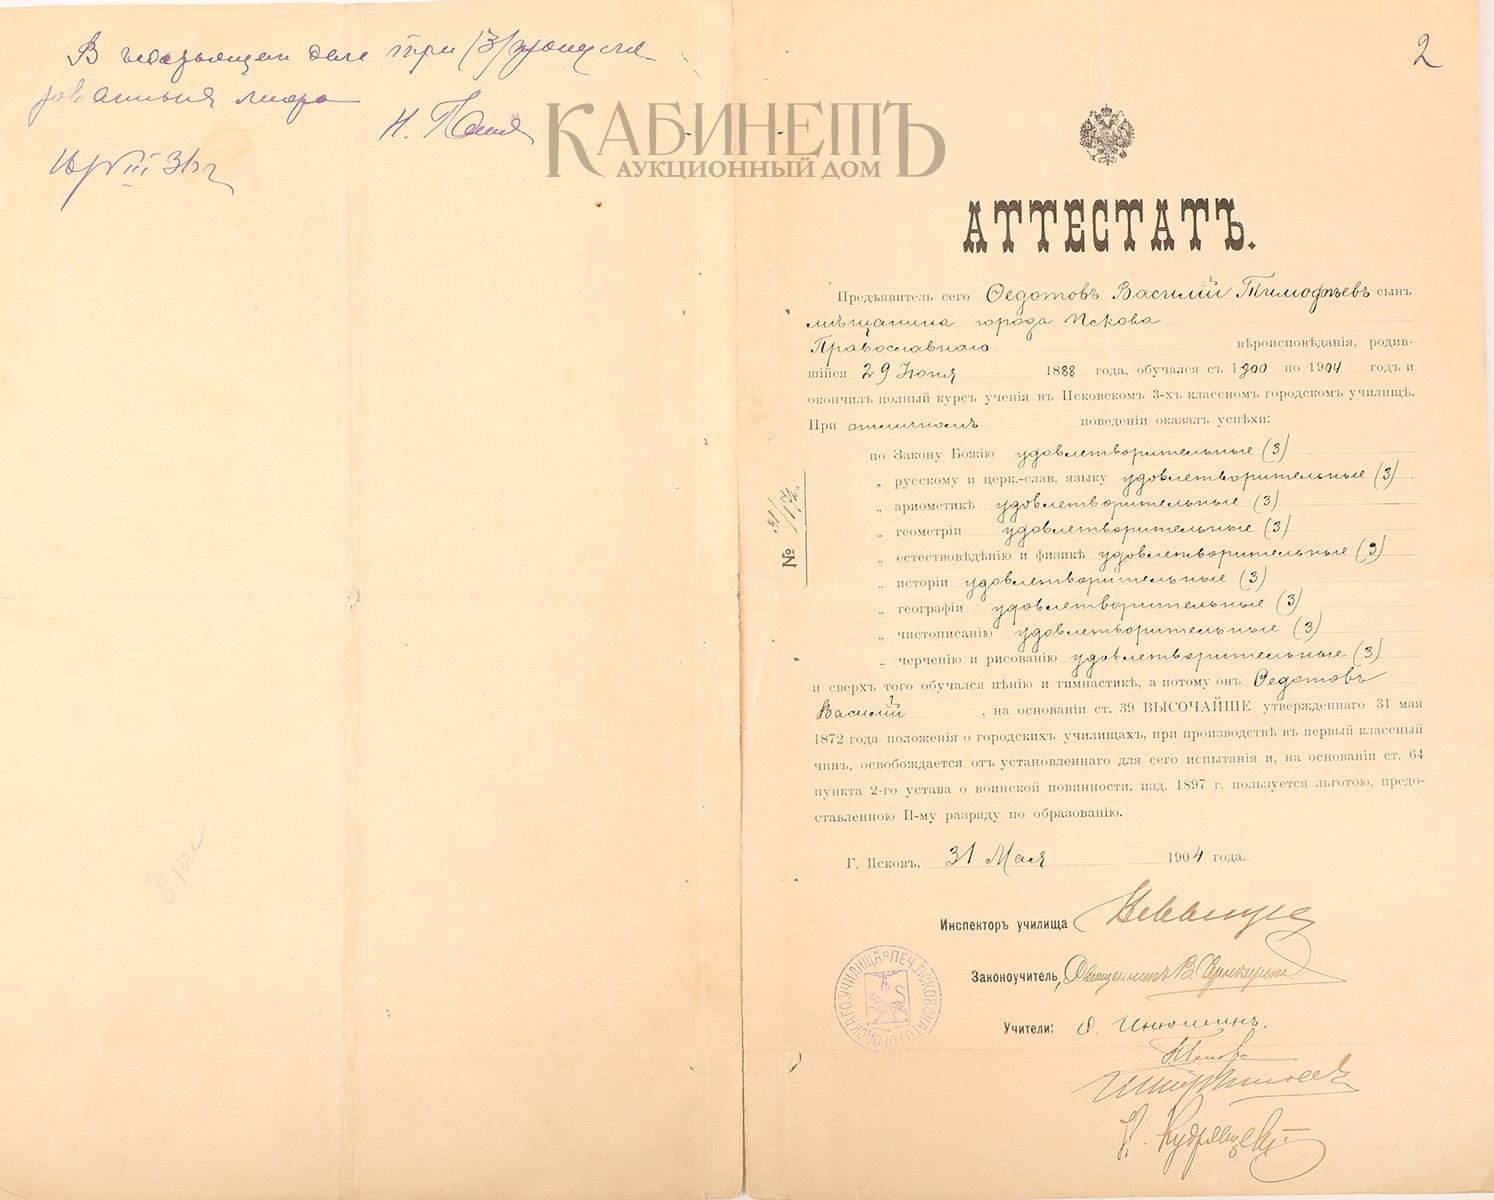 В настоящем деле три (3) пронумерованных листа
2
КАБИНЕТЪ
АУКЦИОННЫЙ ДОМ
АТТЕСТАТЪ.
Предъявитель сего Ѳедотовъ Василій Тимоѳѣевъ сынъ
мѣщанина города Пскова
Православнаго вѣроисповѣданія, родив-
шійся 29 Іюня 1888 года, обучался съ 1900 по 1904 годъ и
окончилъ полный курсъ ученія въ Псковскомъ 3-хъ классномъ городскомъ училищѣ.
При отличномъ поведеніи оказалъ успѣхи:
по Закону Божію удовлетворительные (3)
„ русскому и церк.-слав. языку удовлетворительные (3)
„ ариѳметикѣ удовлетворительные (3)
„ геометріи удовлетворительные (3)
„ естествовѣдѣнію и физикѣ удовлетворительные (3)
„ исторіи удовлетворительные (3)
„ географіи удовлетворительные (3)
„ чистописанію удовлетворительные (3)
„ черченію и рисованію удовлетворительные (3)
и сверхъ того обучался пѣнію и гимнастикѣ, а потому онъ Ѳедотовъ
Василій, на основаніи ст. 39 ВЫСОЧАЙШЕ утвержденнаго 31 мая
1872 года положенія о городскихъ училищахъ, при производствѣ въ первый классный
чинъ, освобождается отъ установленнаго для сего испытанія и, на основаніи ст. 64
пункта 2-го устава о воинской повинности, изд. 1897 г. пользуется льготою, предо-
ставленною II-му разряду по образованію.
№
Г. Псковъ, 31 Мая 1904 года.
Инспекторъ училища
Законоучитель, Священникъ В.
Учители: Ѳ. Инюшинъ.
Н. Кудрявцевъ
ПЕЧ. ПСКОВСКАГО ГОРОДСКАГО УЧИЛИЩА